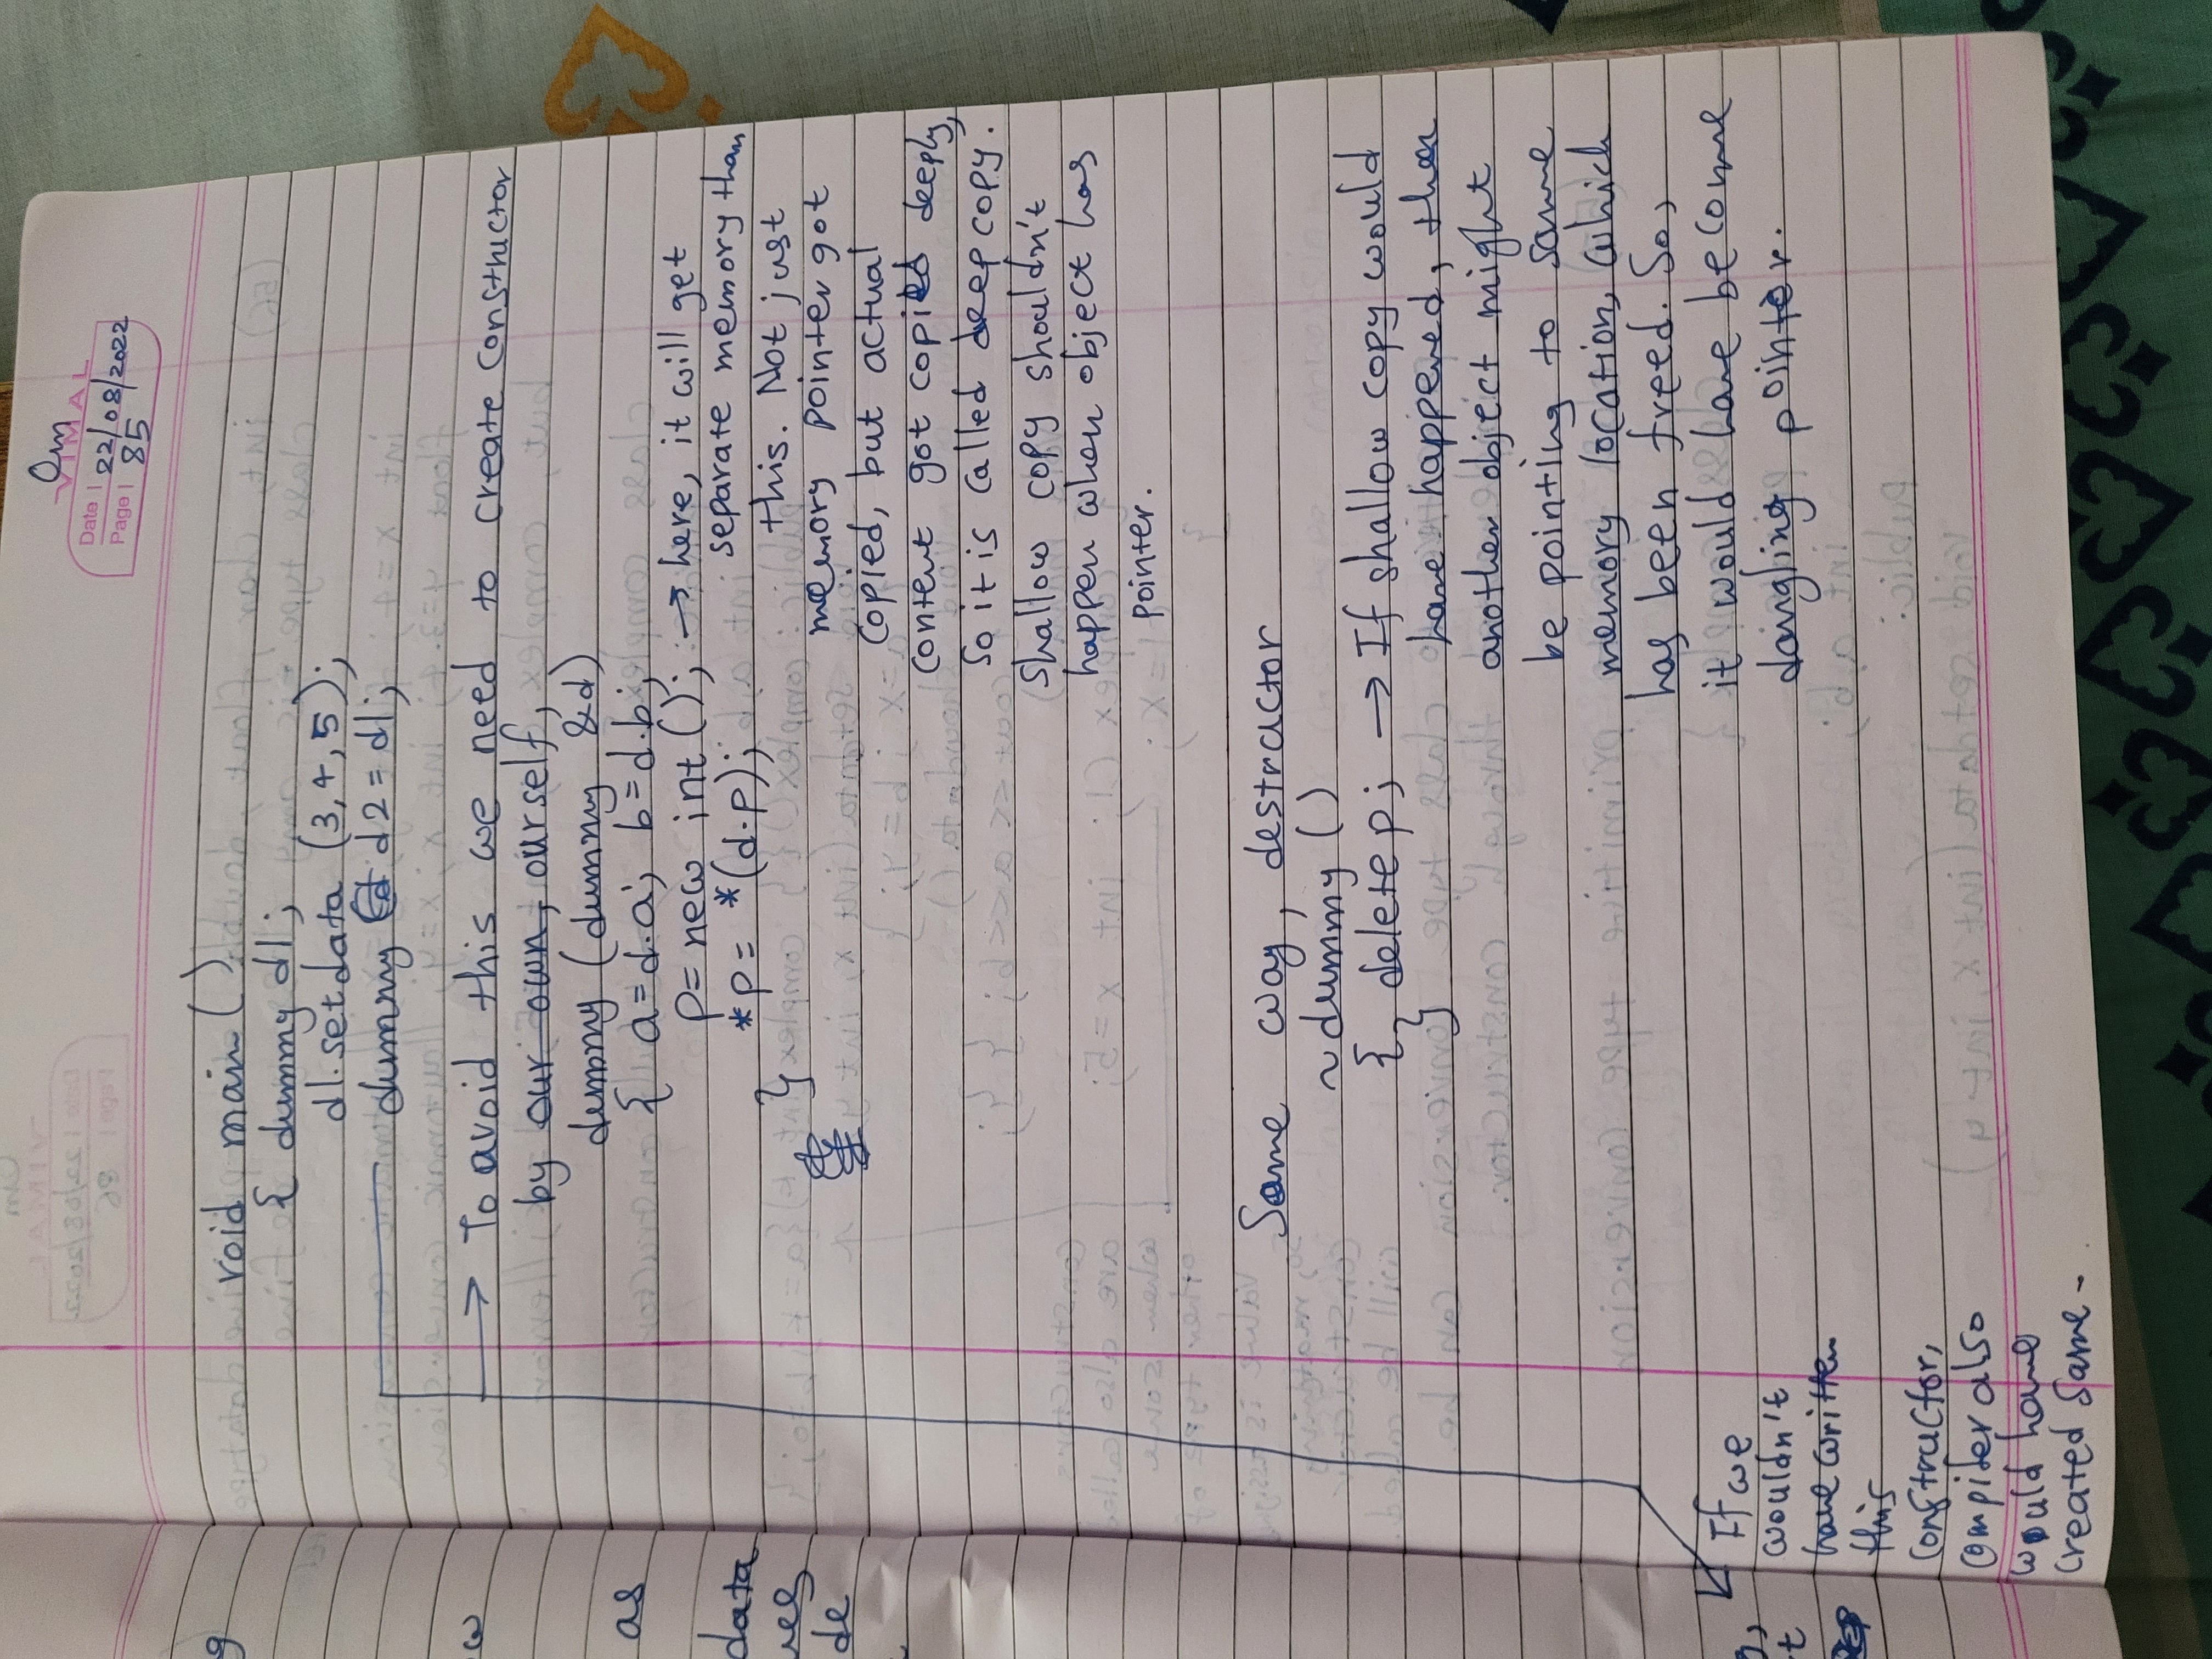 Om
VIMAL
Date 22/08/2022
Page 85
void main()
{ dummy d1;
d1.setdata (3,4,5);
dummy d2 = d1;
→ To avoid this we need to create constructor
by our own, ourself,
dummy (dummy &d)
{ a=d.a; b=d.b;
p= new int(); → here, it will get
*p= *(d.p); separate memory than
} this. Not just
memory pointer got
copied, but actual
content got copied deeply,
so it is called deep copy.
shallow copy shouldn't
happen when object has
pointer.
Same way, destructor
~dummy ()
{ delete p; → If shallow copy would
} have happened, then
another object might
be pointing to same
memory location, which
has been freed. So,
it would have become
dangling pointer.
If we
wouldn't
have written
this
constructor,
compiler also
would have
created same.
g
w
as
data
ues
de
t